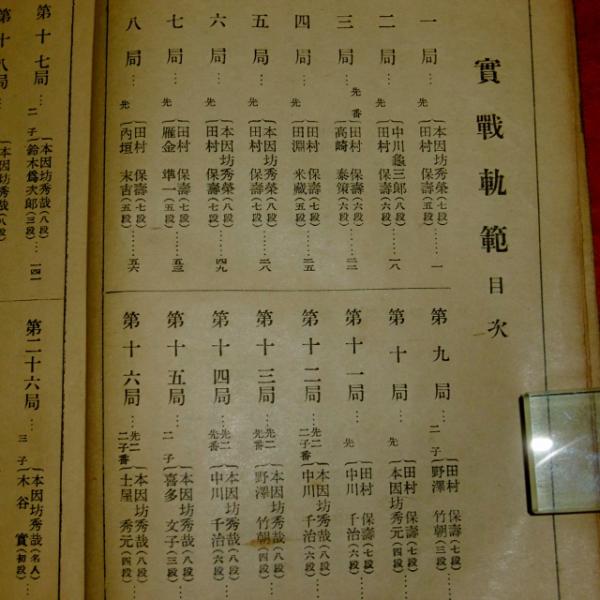 實戰軌範 目次
一局…先 {本因坊秀榮(七段) 田村保壽(五段)……一
二局…先 {中川龜三郎(八段) 田村保壽(六段)……一八
三局…先番 {田村保壽(六段) 高崎泰策(六段)……二二
四局…先 {田村保壽(七段) 田淵米藏(五段)……二五
五局…先 {本因坊秀榮(八段) 田村保壽(七段)……二八
六局…先 {本因坊秀榮(八段) 田村保壽(七段)……四九
七局…先 {田村保壽(七段) 雁金準一(五段)……五三
八局…先 {田村保壽(七段) 內垣末吉(五段)……五六
第九局…二子 {田村保壽(七段) 野澤竹朝(三段)
第十局…先 {田村保壽(七段) 本因坊秀元(四段)
第十一局…先 {田村保壽(七段) 中川千治(六段)
第十二局…先二二子番 {本因坊秀哉(八段) 中川千治(六段)
第十三局…先二先番 {本因坊秀哉(八段) 野澤竹朝(四段)
第十四局…先二先番 {本因坊秀哉(八段) 中川千治(六段)
第十五局…二子 {本因坊秀哉(八段) 喜多文子(三段)
第十六局…先二二子番 {本因坊秀哉(八段) 土屋秀元(四段)
第十七局…二子 {本因坊秀哉(八段) 鈴木爲次郎(三段)…一四一
第十八局 本因坊秀哉(八段)
第二十六局…三子 {本因坊秀哉(名人) 木谷實(初段)